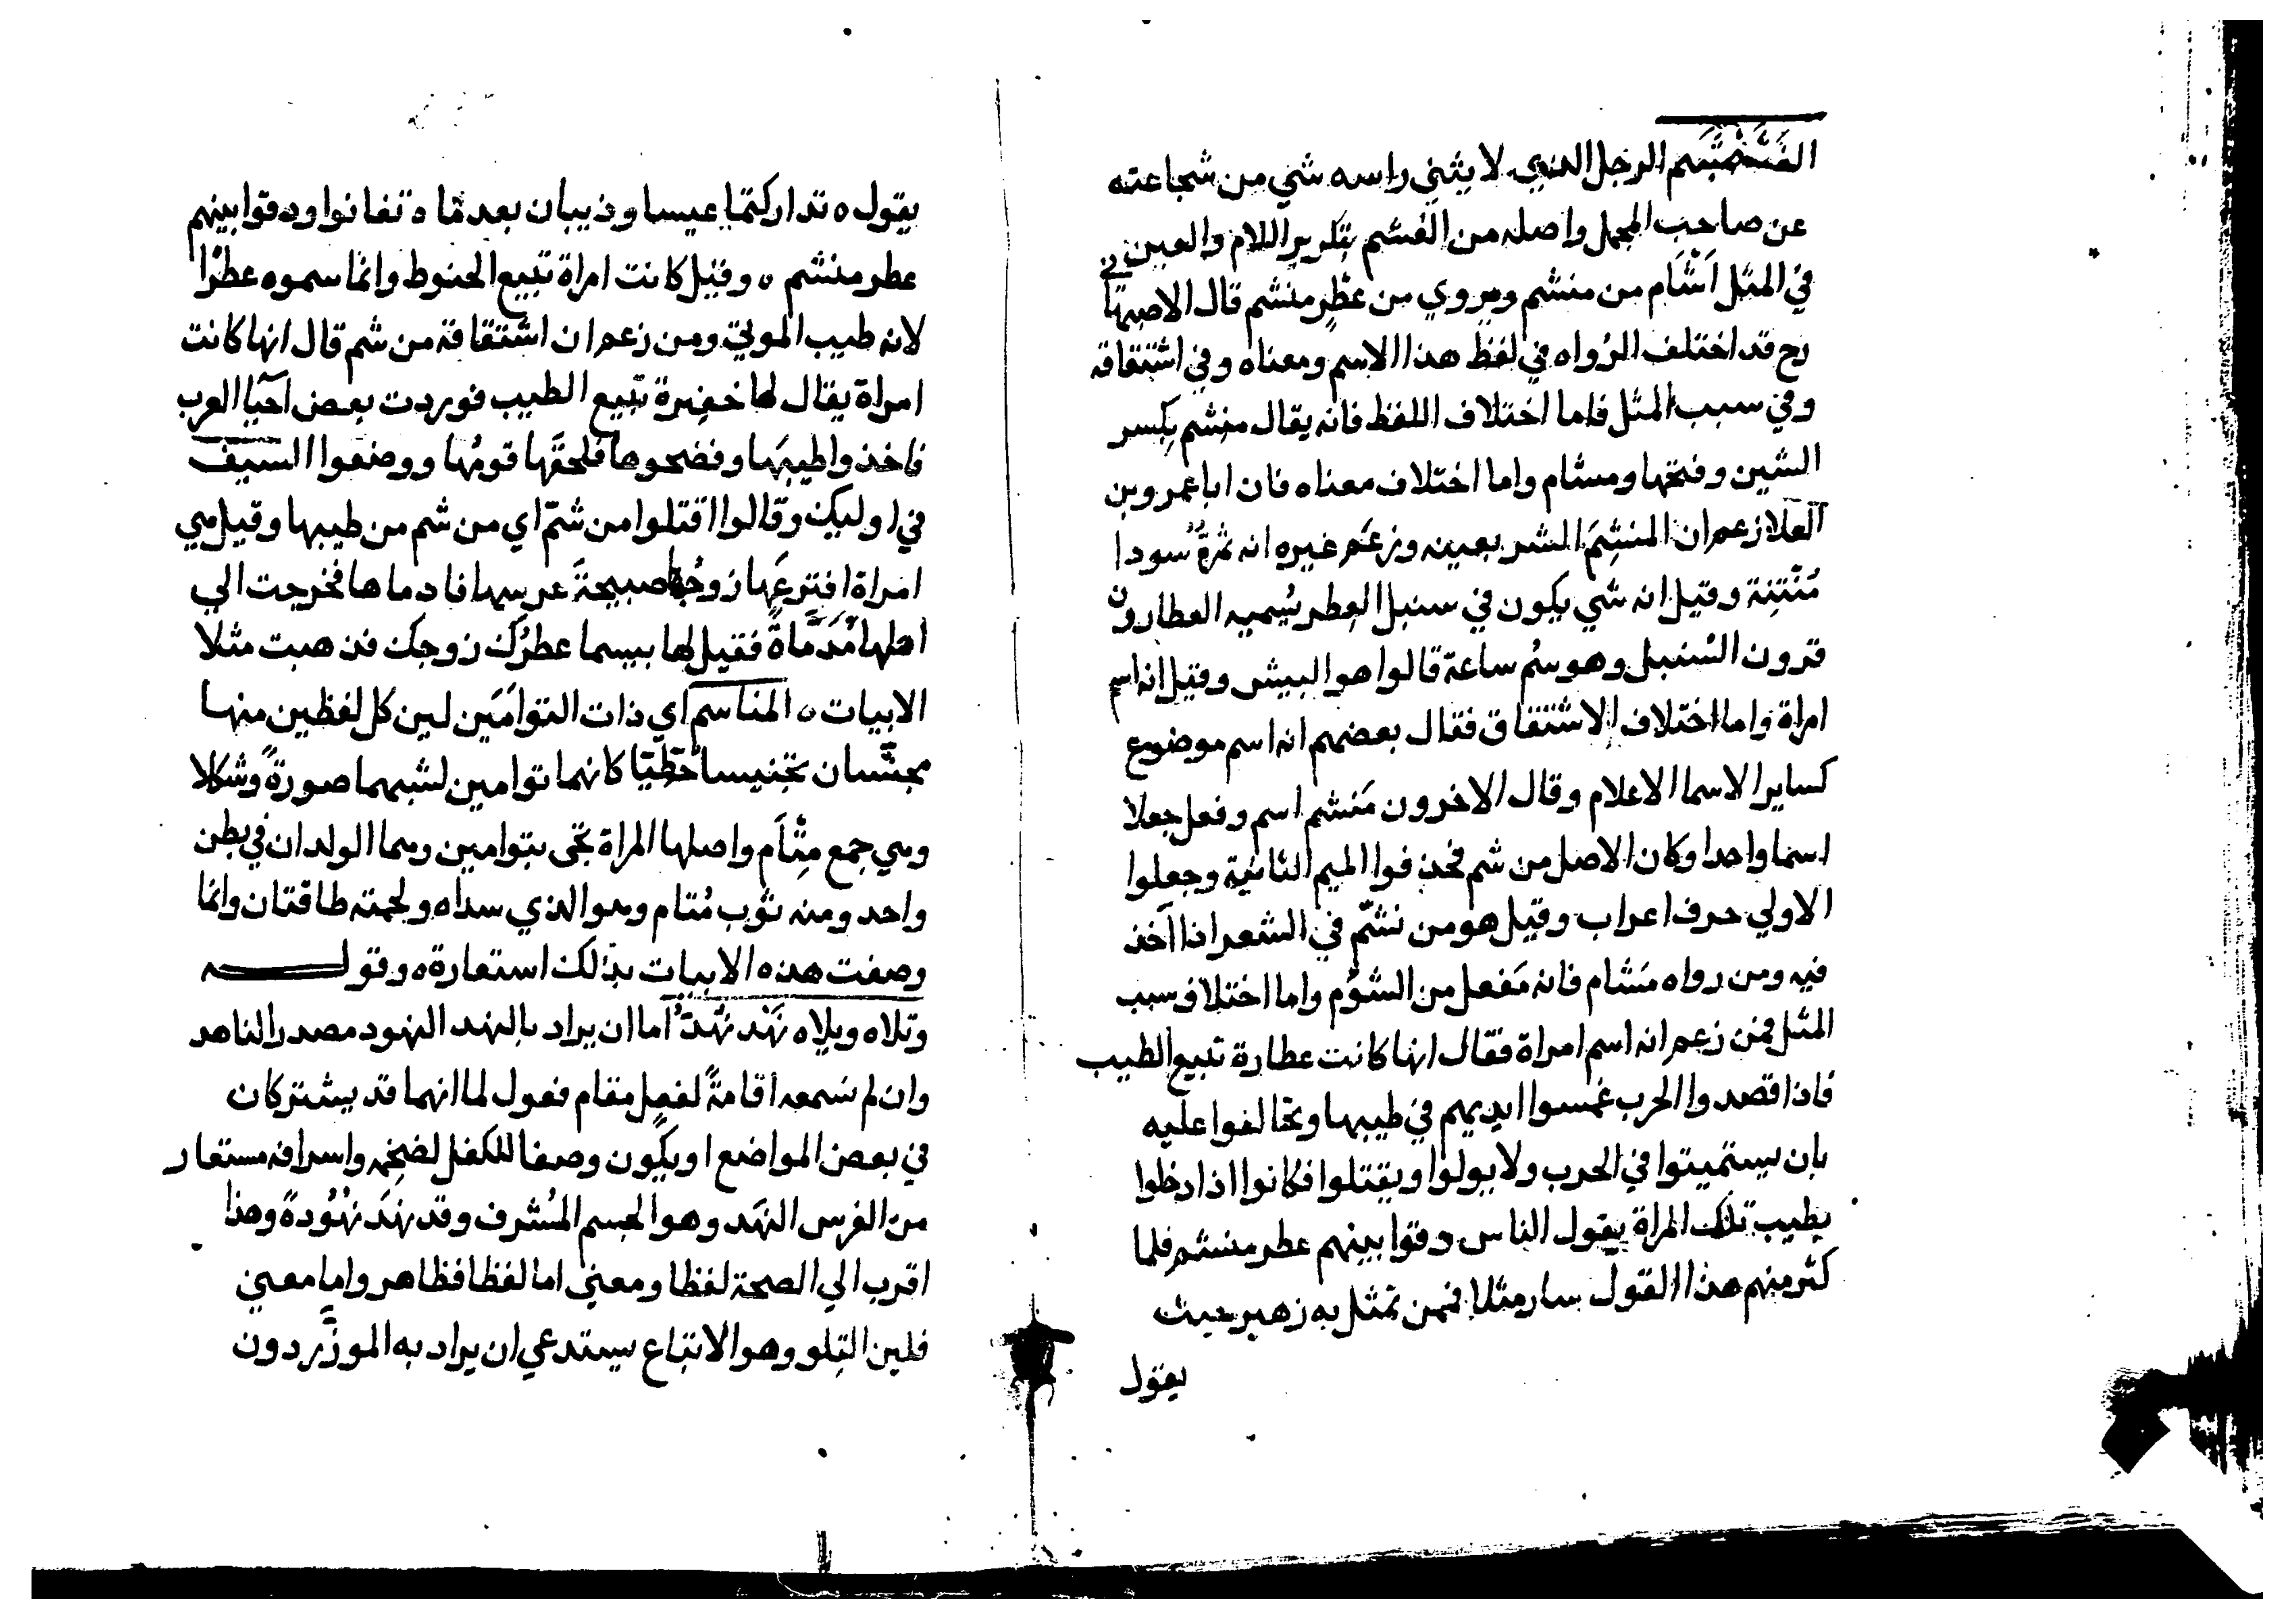 الغَشَمْشَم الرجل الذي لا يثني راسه شي من شجاعته
عن صاحب المجمل واصله من الغشم بتكرير اللام والعين
في المثل اَشْاَم من منشم ويروي من عِطْرِ منشم قال الاصبهاني
رح قد اختلف الرُواه في لفظ هذا الاسم ومعناه وفي اشتقاقه
وفي سبب المثل فاما اختلاف اللفظ فانه يقال منشِم بكسر
الشين وفتحها ومشام واما اختلاف معناه فان ابا عمرو بن
العلا زعم ان المنشِمَ الشر بعينه وزعَم غيره انه ثمرةٌ سودا
مُنْتِنة وقيل انه شي يكون في سنبل العِطر يُسميه العطارون
قرون السُنبل وهو سُم ساعة قالوا هو البيش وقيل انه اسم
امراة واما اختلاف الاشتقاق فقال بعضهم انه اسم موضوع
كساير الاسما الاعلام وقال الاخرون مَنشم اسم وفعل جعلا
اسما واحدا وكان الاصل من شم فحذفوا الميم الثانية وجعلوا
الاولي حرف اعراب وقيل هو من نشّم في الشعر اذا اَخذ
فيه ومن رواه مَشام فانه مَفعل من الشؤم واما اختلاف سبب
المثل فمن زعم انه اسم امراة فقال انها كانت عطارة تبيع الطيب
فاذا قصدوا الحرب غمسوا ايديهم في طيبها وتحالفوا عليه
بان يستميتوا في الحرب ولا يولوا ويقتلوا فكانوا اذا دخلوا
بطيب تلك المراة يقول الناس دقوا بينهم عطر منشم فلما
كثر منهم هذا القول سار مثلا فمن تمثل به زهير حيث
يقول
يقول ه تداركتما عبسا وذبيان بعد ما ه تفانوا ودقوا بينهم
عطر منشم ه وقيل كانت امراة تبيع الحنوط وانما سموه عطرًا
لانه طيب الموتي ومن زعم ان اشتقاقه من شم قال انها كانت
امراة يقال لها خفيرة تبيع الطيب فوردت بعض اَحيا العرب
فاخذوا طيبَها وفضحوها فلحقَها قومُها ووضعوا السيف
في اوليك وقالوا اقتلوا من شمّ اي من شم من طيبها وقيل هي
امراة افترعَها زوجُها صبيحةَ عرسها فادماها فخرجت الي
اهلها مُدَمّاةً فقيل لها بيسما عطرُك زوجك فذهبت مثلا
الابيات ه المتاسم اي ذات التوامَين لين كل لفظين منها
مجنّسان تجنيسا خطيّا كانهما توامين لشبههما صورةً وشكلا
وهي جمع مِتْاَم واصلها المراة تجى بتوامين وهما الولدان في بطن
واحد ومنه ثوب مُتام وهو الذي سداه ولحمته طاقتان وانما
وصفت هذه الابيات بذلك استعارة ه وقولـــه
وتلاه ويلاه نَهْد نَهَّدَ اما ان يراد بالنهد النهود مصدر الناهد
وان لم نسمعه اقامةً لفعل مقام فعول لما انهما قد يشتركان
في بعض المواضع او يكون وصفا للكفل لضخمه واسرافه مستعار
من الفرس النَهْد وهو الجسم المُشرف وقد نهَدَ نُهُودةً وهذا
اقرب الي الصحة لفظا ومعني اما لفظا فظاهر واما معني
فلين التِلو وهو الاتباع يستدعي ان يراد به الموزّر دون